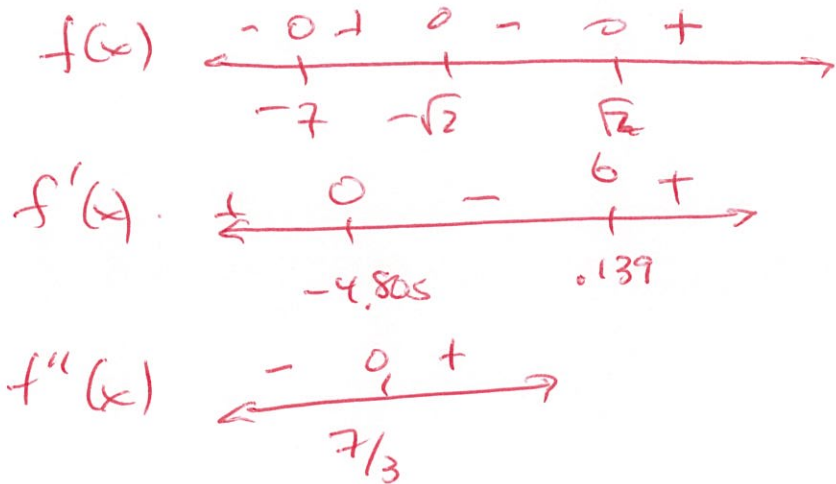 f(x) - 0 + 0 - 0 +
-7 -√2 √2
f'(x) + 0 - 0 +
-4.805 .139
f''(x) - 0 +
7/3